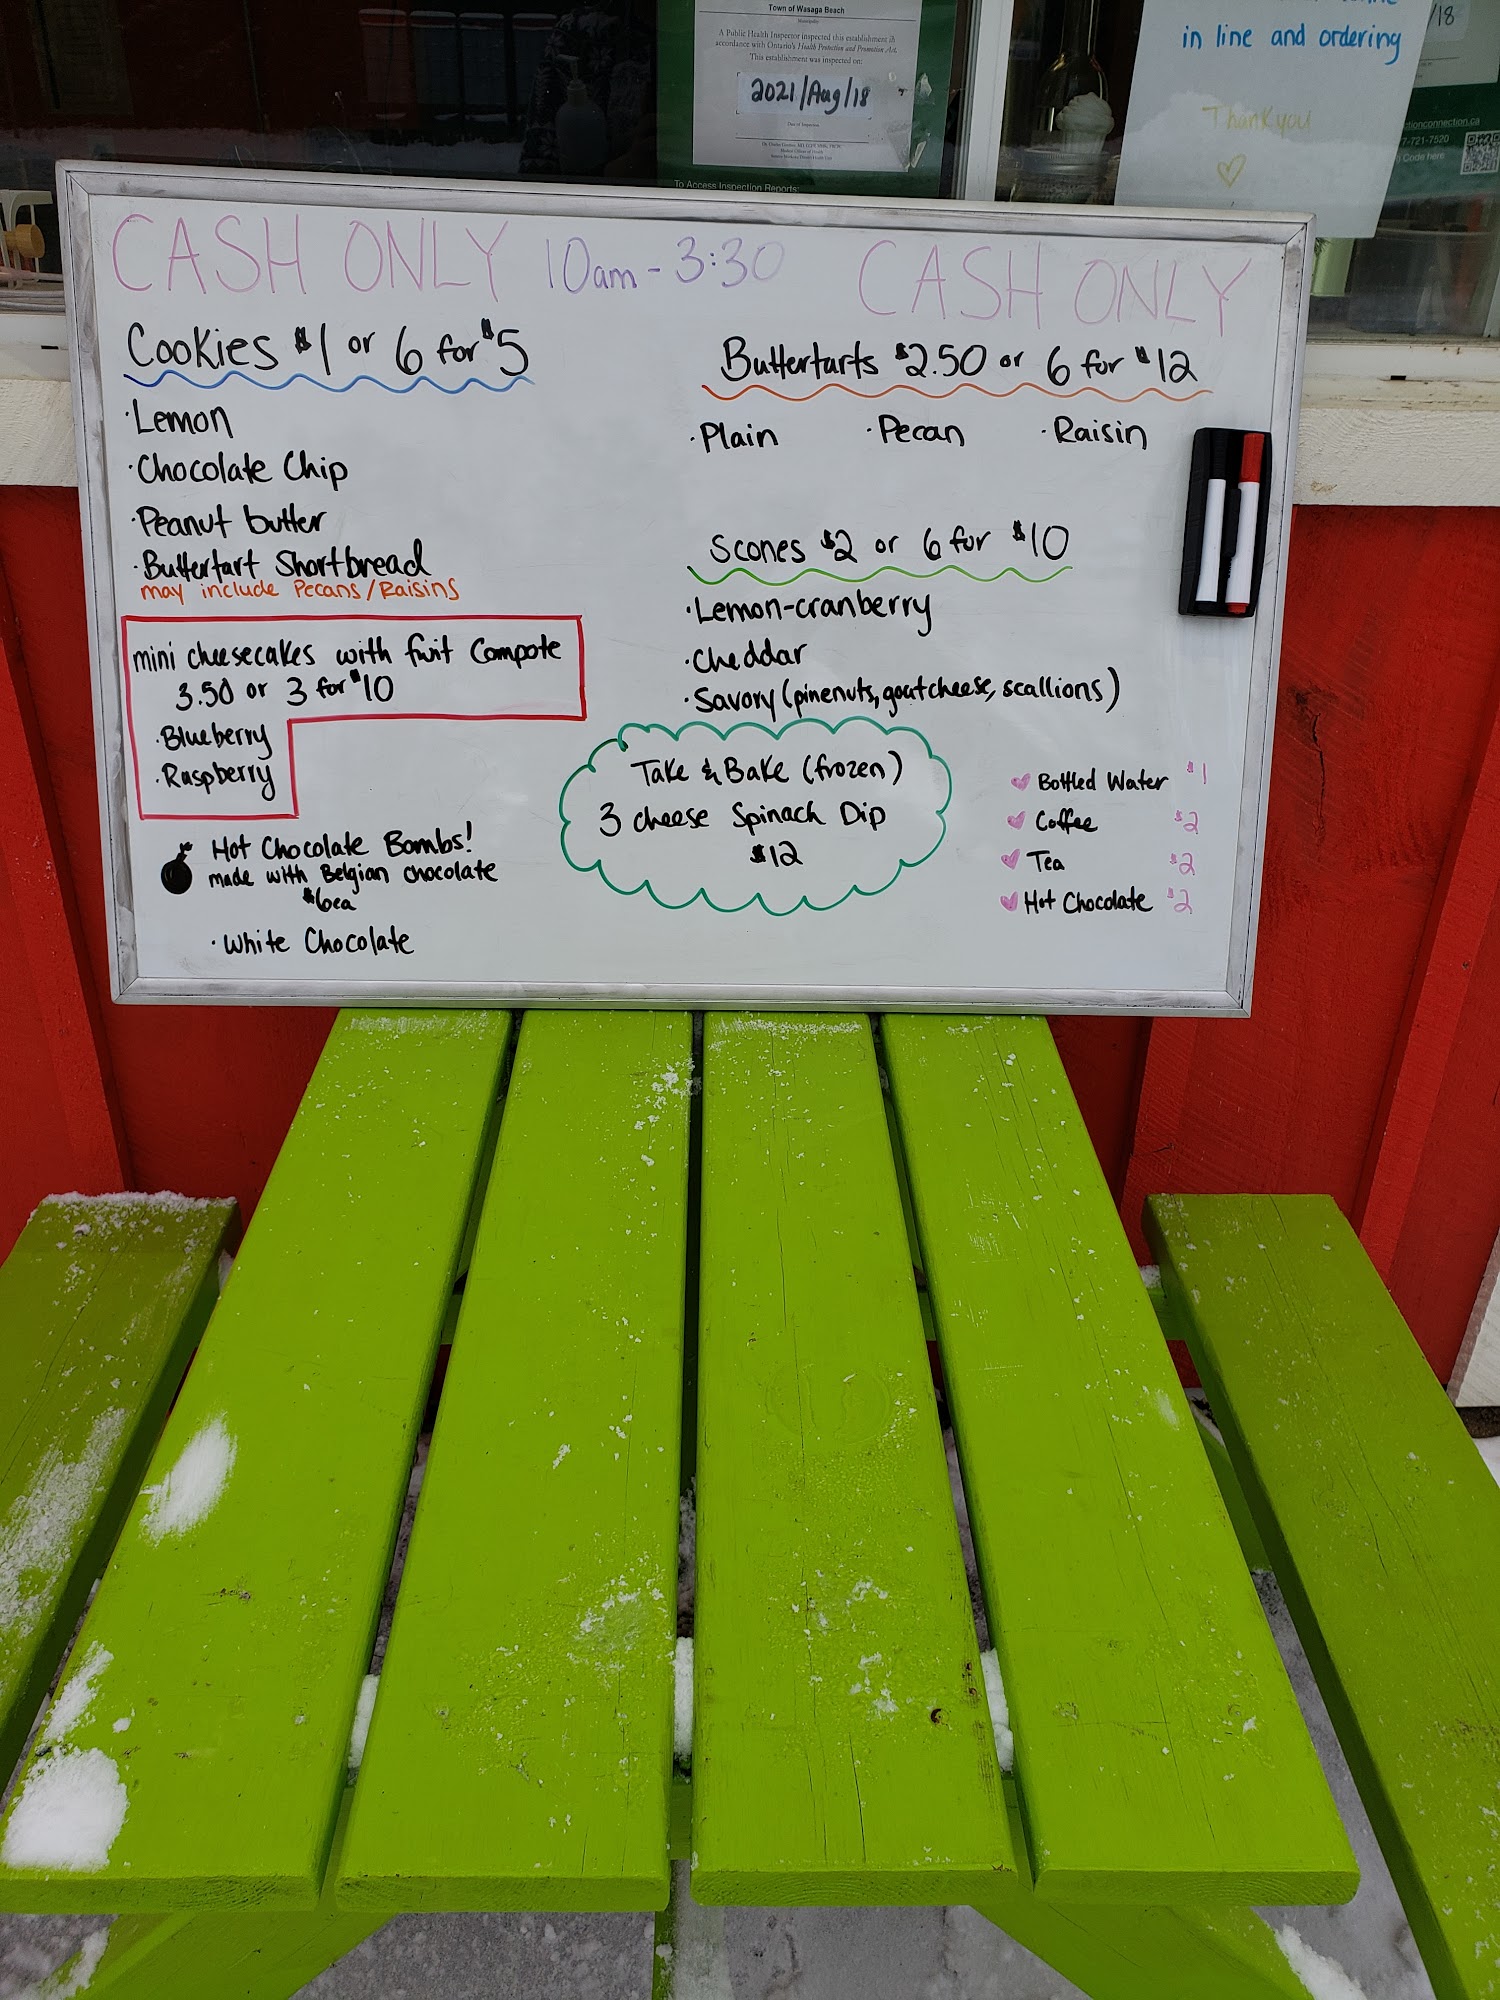 Town of Wasaga Beach
Municipality
A Public Health Inspector inspected this establishment in
accordance with Ontario's Health Protection and Promotion Act.
This establishment was inspected on:
2021/Aug/18
Date of Inspection
To Access Inspection Reports:
in line and ordering
Thankyou
/18
7-721-7520
Code here
CASH ONLY 10am - 3:30 CASH ONLY
Cookies $1 or 6 for $5
·Lemon
·Chocolate Chip
·Peanut butter
·Buttertart Shortbread
may include Pecans/Raisins
mini cheesecakes with fruit Compote
3.50 or 3 for $10
·Blueberry
·Raspberry
Hot Chocolate Bombs!
made with Belgian chocolate
$6ea
·White Chocolate
Buttertarts $2.50 or 6 for $12
·Plain ·Pecan ·Raisin
Scones $2 or 6 for $10
·Lemon-cranberry
·Cheddar
·Savory (pinenuts, goatcheese, scallions)
Take & Bake (frozen)
3 cheese Spinach Dip
$12
Bottled Water $1
Coffee $2
Tea $2
Hot Chocolate $2